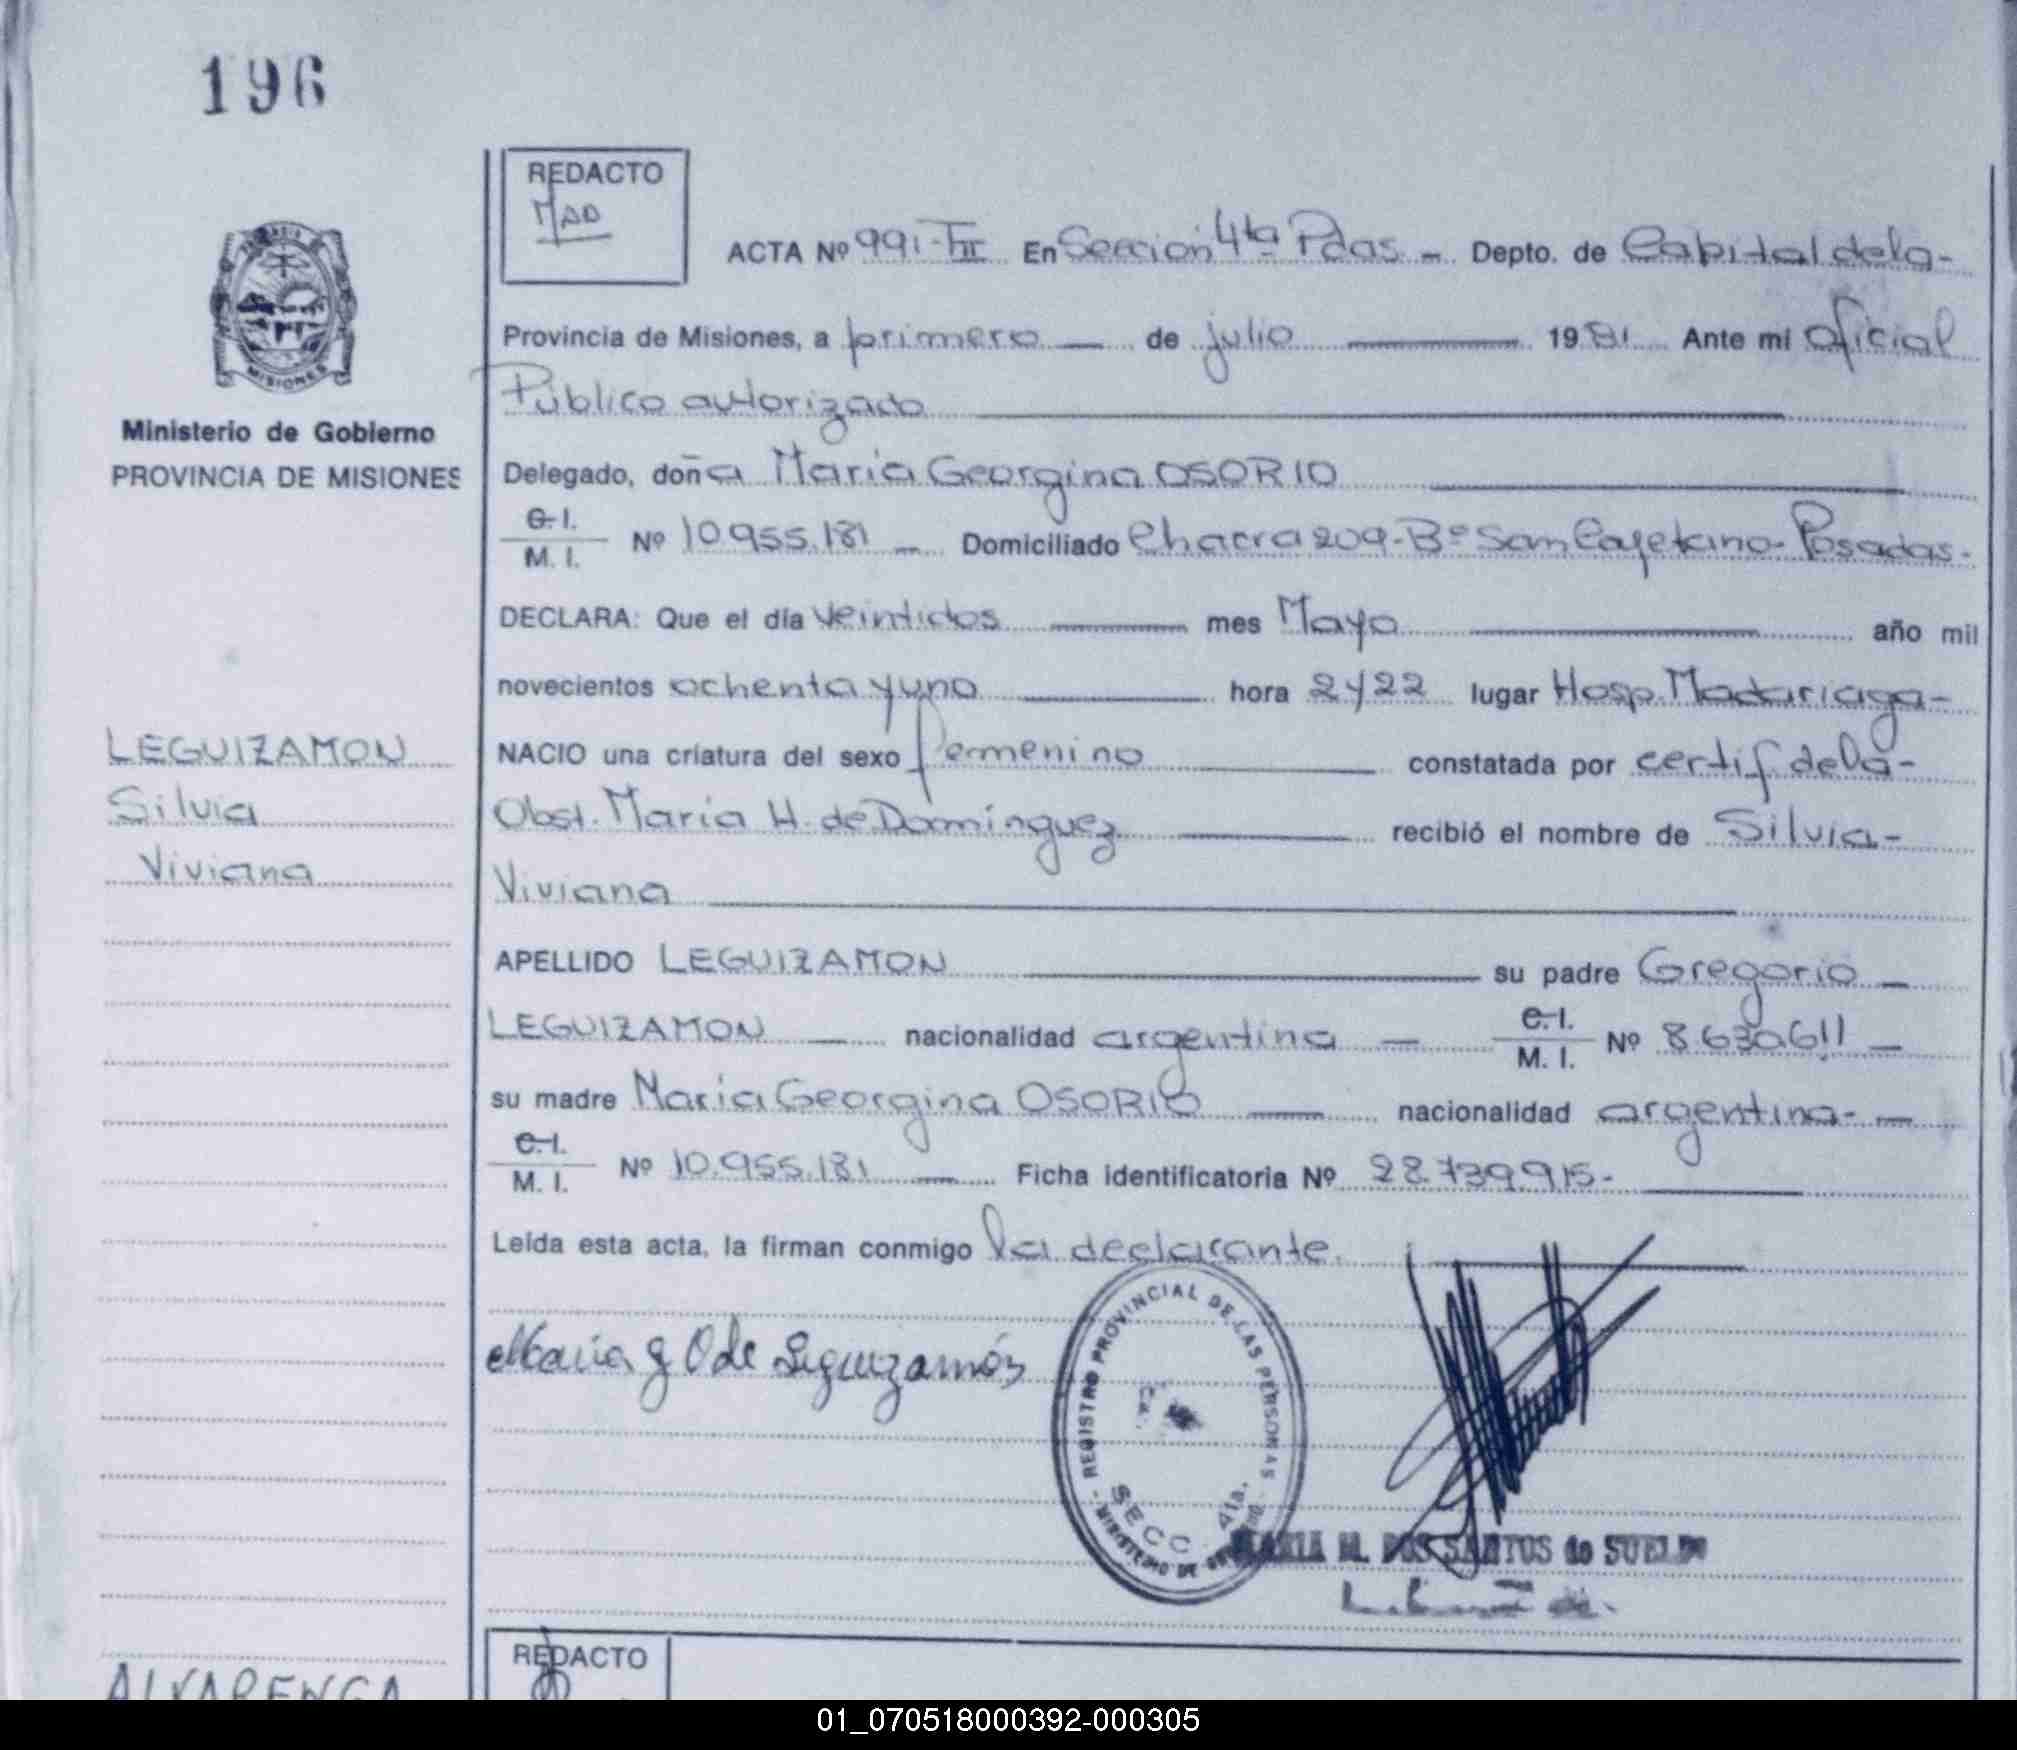 196
REDACTO
MAD
ACTA Nº 991-III En Sección 4ta Pdas. - Depto. de Capital de la-
Provincia de Misiones, a primero de julio 1981 Ante mi Oficial
Público autorizado
Ministerio de Gobierno
PROVINCIA DE MISIONES
MISIONES
Delegado, doña Maria Georgina OSORIO
C.I. M. I. Nº 10.955.181 - Domiciliado Chacra 209-Bº San Cayetano-Posadas-
DECLARA: Que el día veintidos mes Mayo año mil
novecientos ochenta y uno hora 2y22 lugar Hosp. Madariaga-
NACIO una criatura del sexo femenino constatada por certif de la-
Obst. Maria H. de Dominguez recibió el nombre de Silvia-
Viviana
LEGUIZAMON
Silvia
Viviana
APELLIDO LEGUIZAMON su padre Gregorio
LEGUIZAMON nacionalidad argentina C.I. M. I. Nº 8.630.611
su madre Maria Georgina OSORIO nacionalidad argentina-
C.I. M. I. Nº 10.955.181 Ficha identificatoria Nº 28.739.915-
Leída esta acta, la firman conmigo la declarante.
Maria G O de Leguizamón
REGISTRO PROVINCIAL DE LAS PERSONAS
SECC. 4ta.
MINISTERIO DE
MARIA M. DOS SANTOS de SUELDO
REDACTO
ALVARENGA
01_070518000392-000305